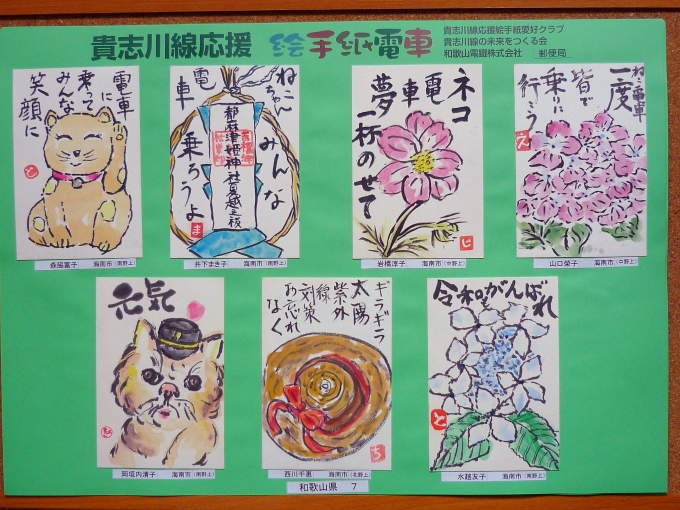 貴志川線応援 絵手紙電車
貴志川線応援絵手紙愛好クラブ
貴志川線の未来をつくる会
和歌山電鐵株式会社 郵便局
電車
に
乗って
みんな
笑顔に
と
森脇富子 海南市(南野上)
ねこ
ちゃん
電車
みんな
乗ろうよ
都麻津姫神社夏越之祓
ま
井下まき子 海南市(南野上)
ネコ
電車
夢一杯のせて
じ
岩橋淳子 海南市(中野上)
ねこ電車
一度
皆で
乗りに
行こう
え
山口榮子 海南市(中野上)
元気
岡垣内清子 海南市(南野上)
ギラギラ
太陽
紫外
線
対策
お忘れ
なく
ち
西川千惠 海南市(北野上)
令和がんばれ
と
水越友子 海南市(南野上)
和歌山県 7